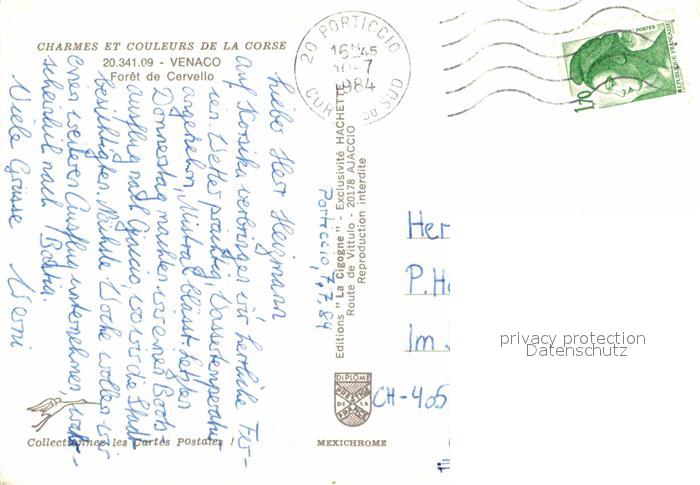 CHARMES ET COULEURS DE LA CORSE
20.341.09 - VENACO
Forêt de Cervello
20 PORTICCIO
16H45
10-7
1984
CORSE DU SUD
POSTES
RÉPUBLIQUE FRANÇAISE
1,70
Porticcio, 7.7.84
Lieber Herr Heizmann
Auf Korsika verbringen wir herrliche Fer-
ien. Wetter prächtig, Wassertemperatur
angenehm, Mistral bläst. Letzten
Donnerstag machten wir einen Boots-
ausflug nach Ajaccio, wo wir die Stadt
besichtigten. Nächste Woche wollen wir
einen weiteren Ausflug unternehmen, wahr-
scheinlich nach Bastia.
Viele Grüsse Verni
Editions "La Cigogne" - Exclusivité HACHETTE
Route de Vittulo - 20178 AJACCIO
Reproduction interdite
Her
P. He
Im
CH-405
privacy protection
Datenschutz
DIPLOME
PRESTIGE
DE LA
FRANCE
Collectionnez les Cartes Postales !
MEXICHROME